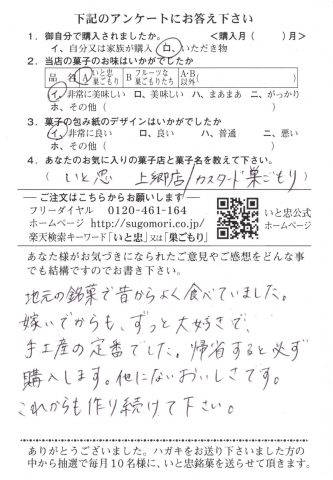 下記のアンケートにお答え下さい
1. 御自分で購入されましたか。 <購入月( )月>
イ、自分又は家族が購入 ロ、いただき物
2. 当店の菓子のお味はいかがでしたか
品名 A いと忠 巣ごもり B フルーツな 巣ごもりたち A・B 以外( )
イ、非常に美味しい ロ、美味しい ハ、まあまあ ニ、がっかり
ホ、その他( )
3. 菓子の包み紙のデザインはいかがでしたか
イ、非常に良い ロ、良い ハ、普通 ニ、悪い
ホ、その他( )
4. あなたのお気に入りの菓子店と菓子名を教えて下さい。
(いと忠 上郷店/カスタード巣ごもり)
ご注文はこちらからお願いします
フリーダイヤル 0120-461-164
ホームページ http://sugomori.co.jp/
楽天検索キーワード「いと忠」又は「巣ごもり」
いと忠公式
ホームページ
あなた様がお気づきになられたご意見やご感想をどんな事
でも結構ですのでお書き下さい。
地元の銘菓で昔からよく食べていました。
嫁いでからも、ずっと大好きで、
手土産の定番でした。帰省すると必ず
購入します。他にないおいしさです。
これからも作り続けて下さい。
ありがとうございました。ハガキをお送り下さいました方の
中から抽選で毎月10名様に、いと忠銘菓を送らせて頂きます。